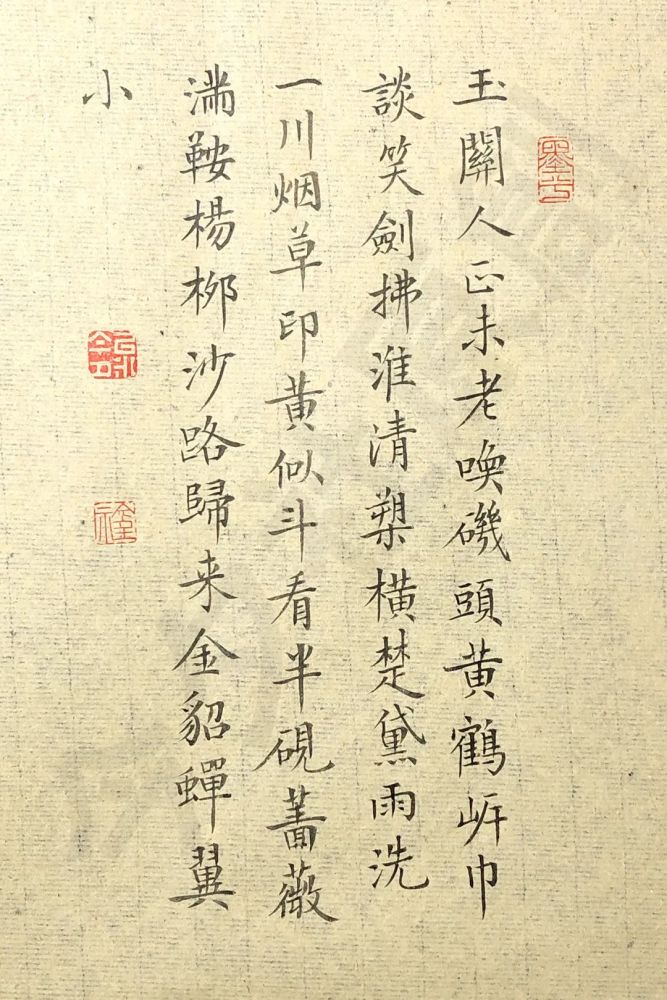 玉關人正未老喚磯頭黄鶴岸巾
談笑劍拂淮清槊横楚黛雨洗
一川烟草印黄似斗看半硯薔薇
满鞍楊栁沙路歸来金貂蟬翼
小